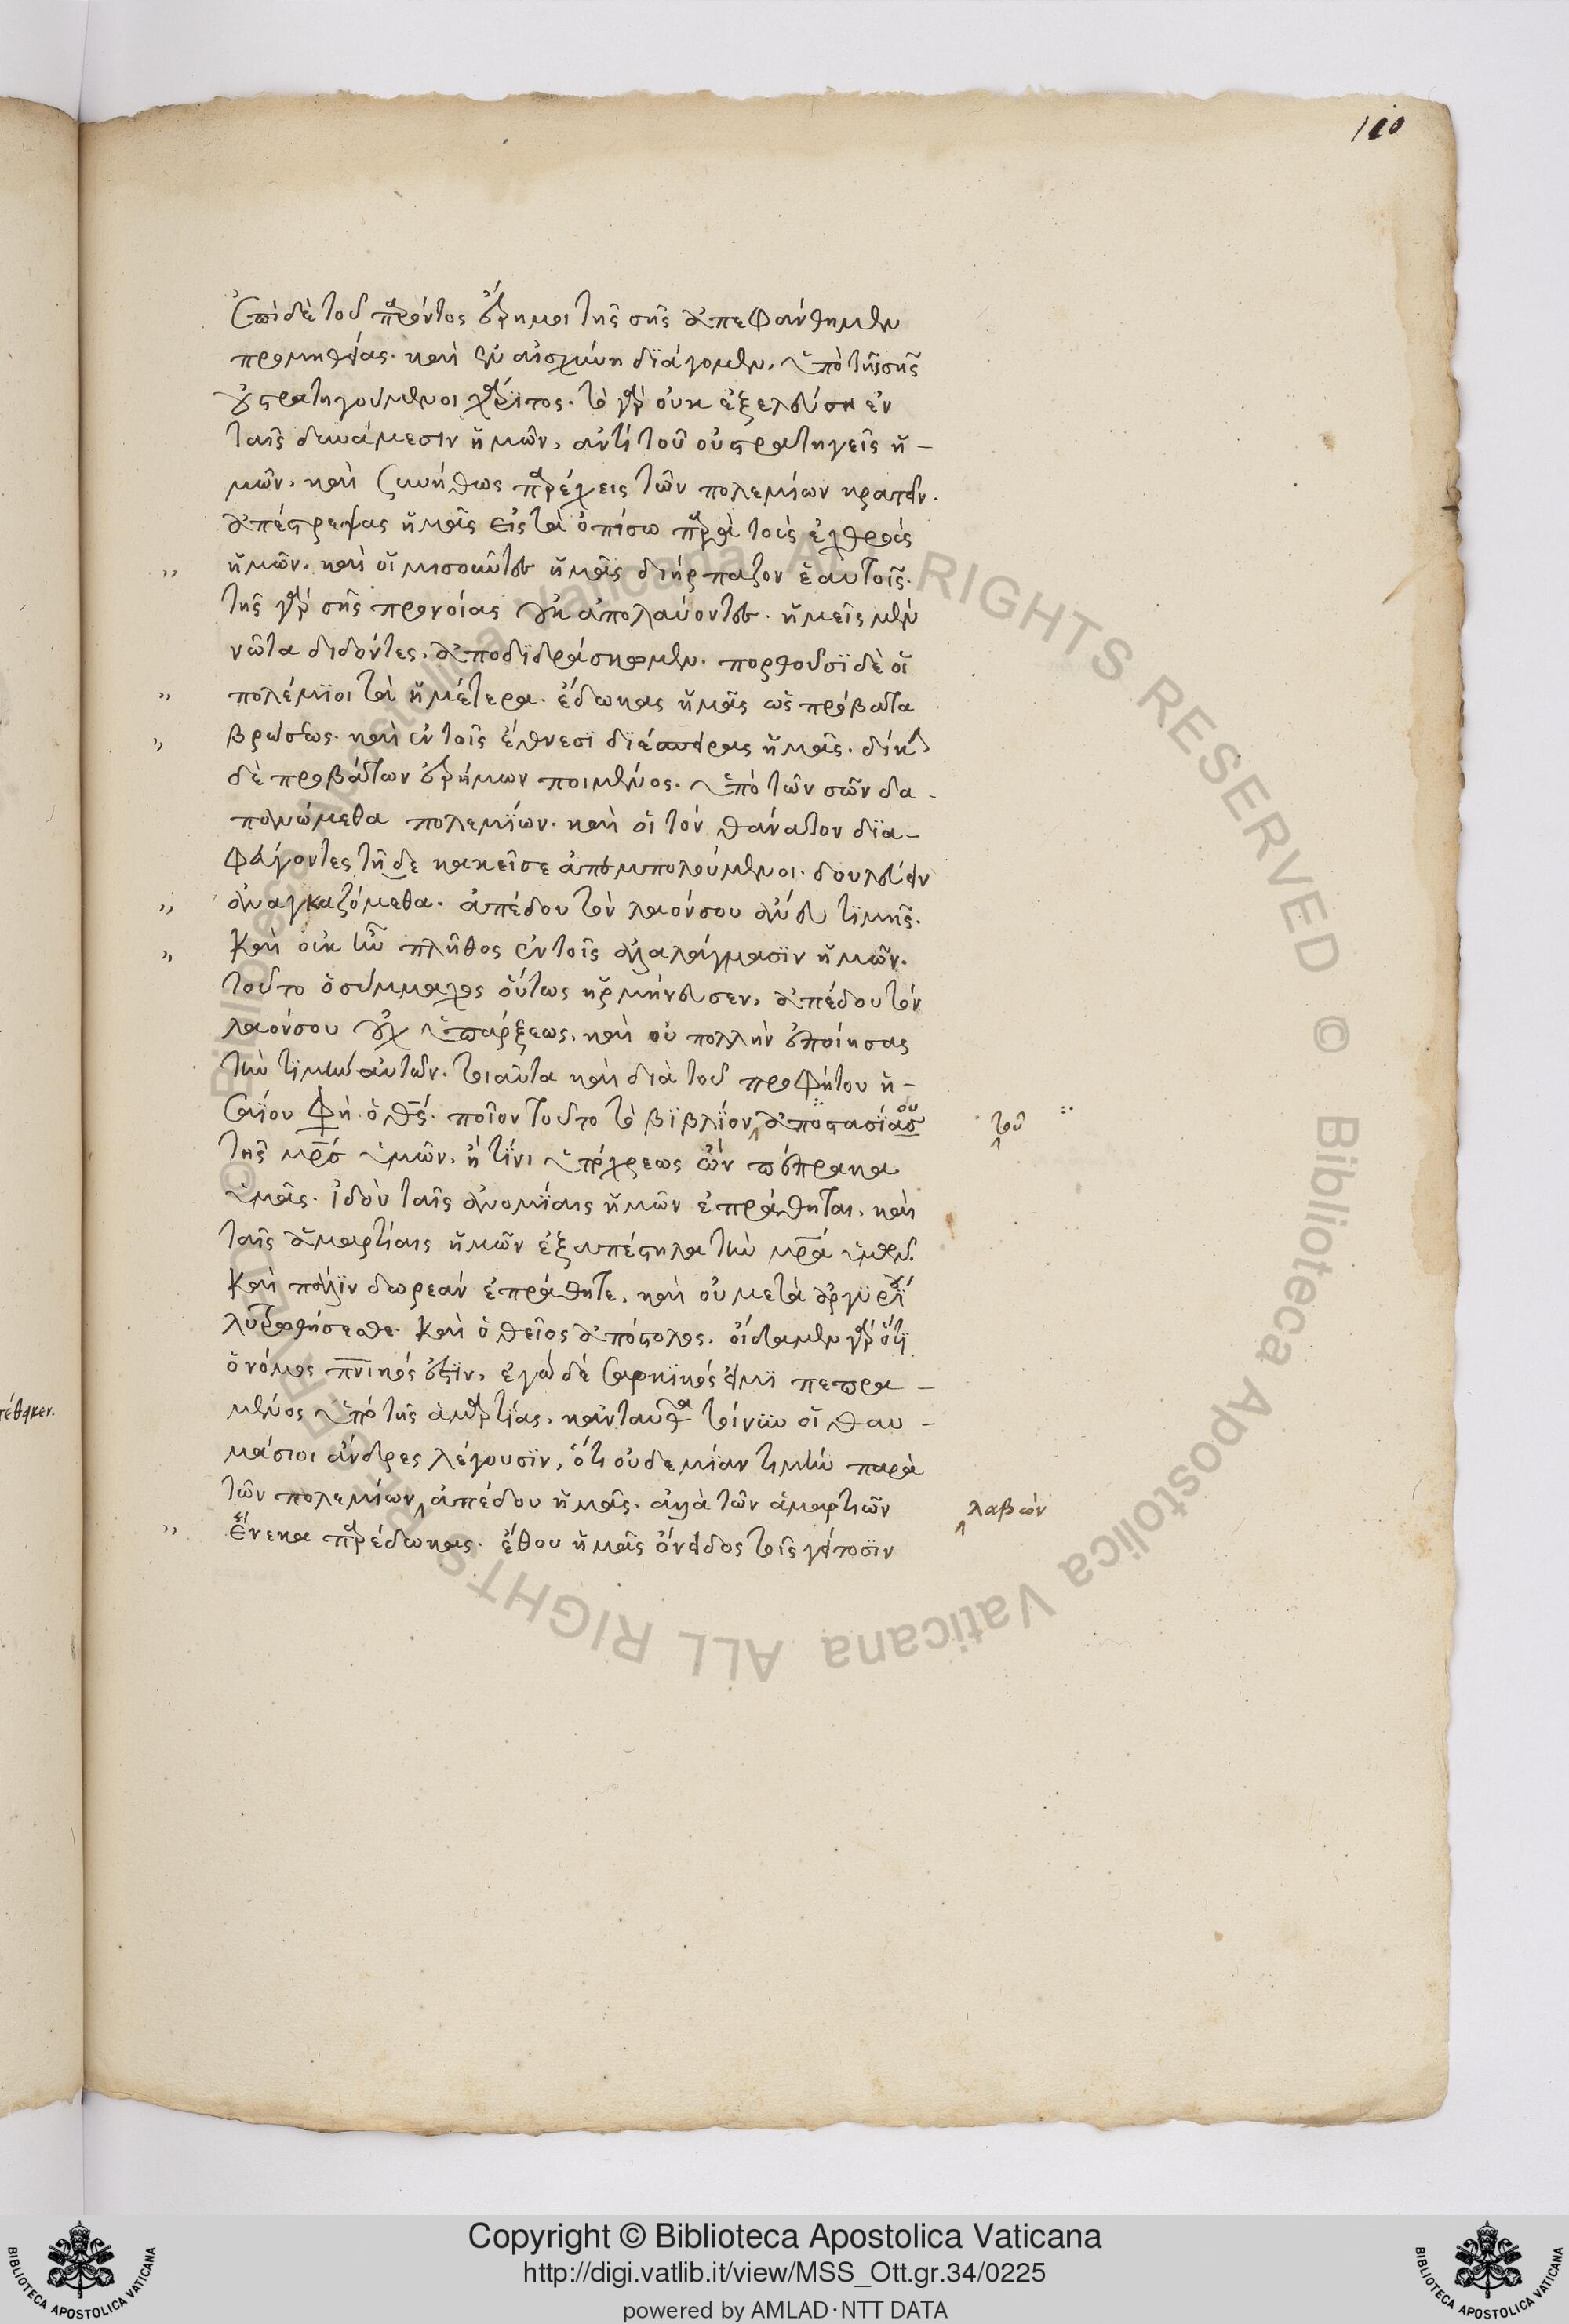 110
Ἐπὶ δὲ τοῦ παρόντος ἔρημοι τῆς σῆς ἀπεφάνθημεν
προμηθείας. καὶ ἐν αἰσχύνη διάγομεν, ὑπὸ τῆς σῆς
οὐ στρατηγούμενοι χάριτος. τὸ γὰρ οὐκ ἐξελεύση ἐν
ταῖς δυνάμεσιν ἡμῶν, αντὶ τοῦ οὐ στρατηγεῖς ἡ-
μῶν. καὶ συνήθως παρέχεις τῶν πολεμίων κρατεῖν.
ἀπέστρεψας ἡμᾶς εἰς τὰ ὀπίσω παρὰ τοὺς ἐχθροὺς
ἡμῶν. καὶ οἱ μισοῦντες ἡμᾶς διήρπαζον ἑαυτοῖς.
τῆς γὰρ σῆς προνοίας οὐκ ἀπολαύοντες. ἡμεῖς μὲν
νῶτα διδόντες, ἀποδιδράσκομεν. πορθοῦσι δὲ οἱ
πολέμιοι τὰ ἡμέτερα. ἔδωκας ἡμᾶς ὡς πρόβατα
βρώσεως. καὶ ἐν τοῖς ἔθνεσι διέσπειρας ἡμᾶς. δίκην
δὲ προβάτων ἐρήμων ποιμένος. ὑπὸ τῶν σῶν δα-
πανώμεθα πολεμίων. καὶ οἱ τὸν θάνατον δια-
φύγοντες τῆδε κακεῖσε ἀπεμπολούμενοι. δουλεύειν
ἀναγκαζόμεθα. ἀπέδου τὸν λαόν σου ἄνευ τιμῆς.
Καὶ οὐκ ἦν πλῆθος ἐν τοῖς ἀλαλάγμασιν ἡμῶν.
τοῦτο ὁ σύμμαχος οὕτως ἡρμήνευσεν, ἀπέδου τὸν
λαόν σου οὐχ ὑπάρξεως. καὶ οὐ πολλὴν ἐποίησας
τὴν τιμὴν αὐτῶν. τοιαῦτα καὶ διὰ τοῦ προφήτου ἡ-
σαΐου φη ὁ θς. ποῖον τοῦτο τὸ βιβλίον ἀποστασίου
τοῦ
τῆς μρσ ὑμῶν. ἢ τίνι ὑπόχρεως ὢν πέπρακα
ὑμᾶς. ἰδοὺ ταῖς ἀνομίαις ἡμῶν ἐπράθηται, καὶ
ταῖς ἁμαρτίαις ἡμῶν ἐξαπέστηλα τὴν μρα ὑμῶν.
Καὶ πάλιν δωρεάν ἐπράθητε, καὶ οὐ μετὰ ἀργυρίου
λυτρωθήσεσθε. Καὶ ὁ θεῖος ἀπόστολος. οἴδαμεν γὰρ ὅτι
ὁ νόμος πνικός ἐστιν, ἐγὼ δὲ σαρκικός εἰμι πεπρα-
μένος ὑπὸ τῆς ἁμαρτίας. κἀνταῦθα τοίνυν οἱ θαυ-
μάσιοι ἄνδρες λέγουσιν, ὅτι οὐδεμίαν τιμὴν παρὰ
τῶν πολεμίων ἀπέδου ἡμᾶς. ἀλλὰ τῶν ἁμαρτιῶν
λαβών
ἕνεκα παρέδωκας. ἔθου ἡμᾶς ὄνειδος τοῖς γείτοσιν
Copyright © Biblioteca Apostolica Vaticana
http://digi.vatlib.it/view/MSS_Ott.gr.34/0225
powered by AMLAD·NTT DATA
BIBLIOTECA APOSTOLICA VATICANA
BIBLIOTECA APOSTOLICA VATICANA
© Biblioteca Apostolica Vaticana ALL RIGHTS RESERVED © Biblioteca Apostolica Vaticana ALL RIGHTS RESERVED